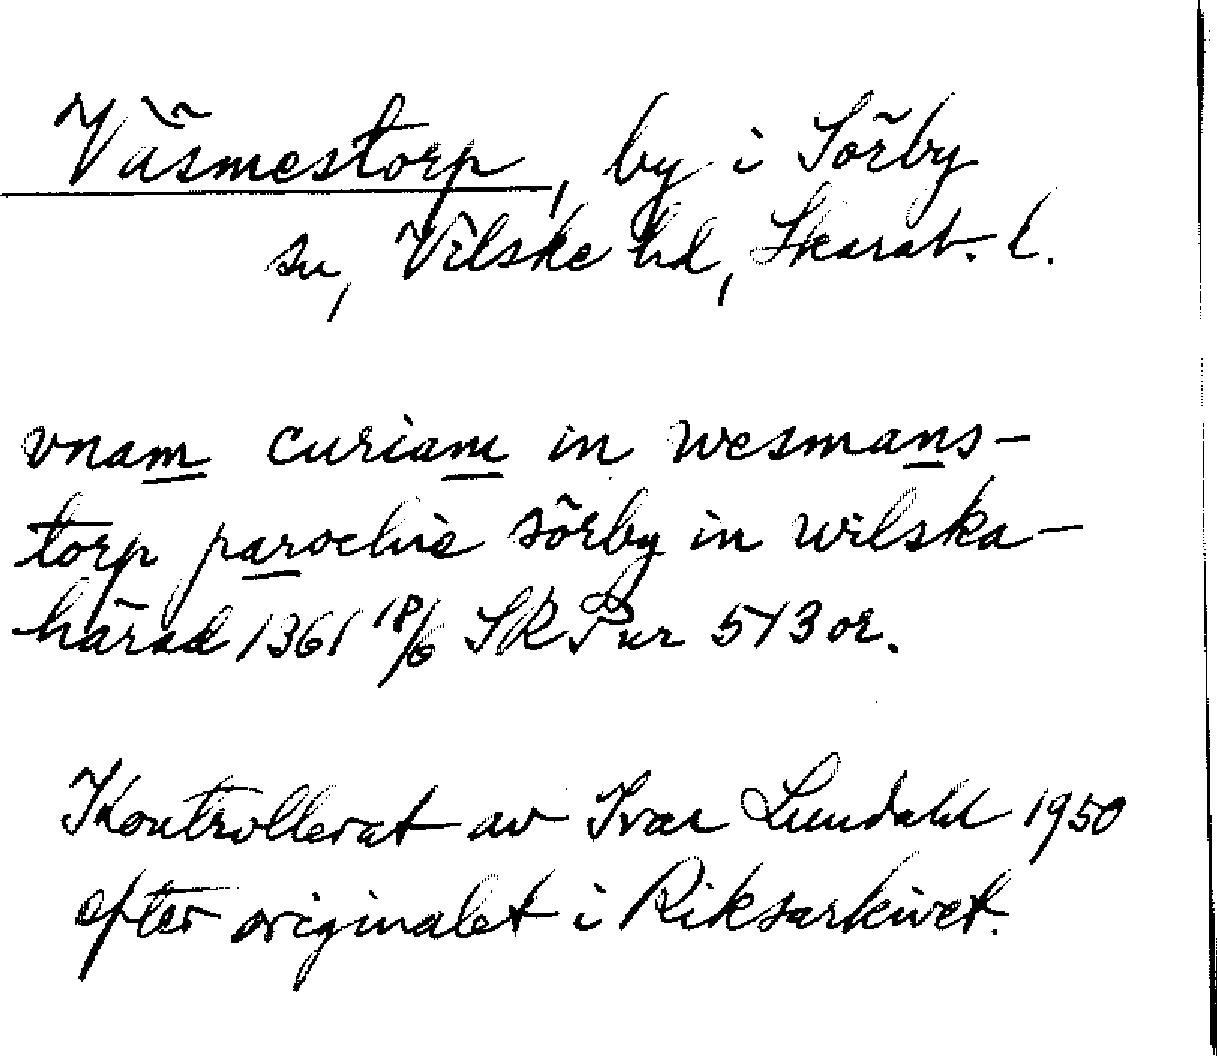 Väsmestorp, by i Sörby
sn, Vilske hd, Skarab. l.
vnam curiam in wesmans-
torp parochie sörby in wilska-
härad 1361 18/6 SRPur 513 or.
Kontrollerat av Ivar Lundahl 1950
efter originalet i Riksarkivet.